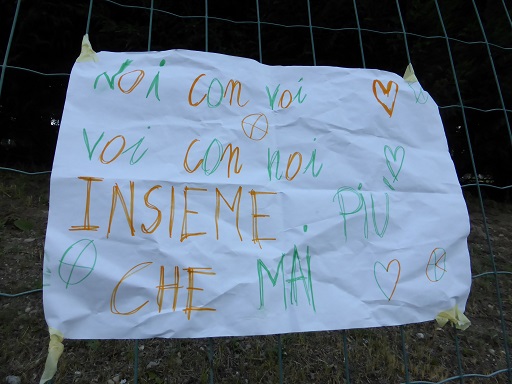 Noi con voi
voi con noi
INSIEME. PIÙ
CHE MAI